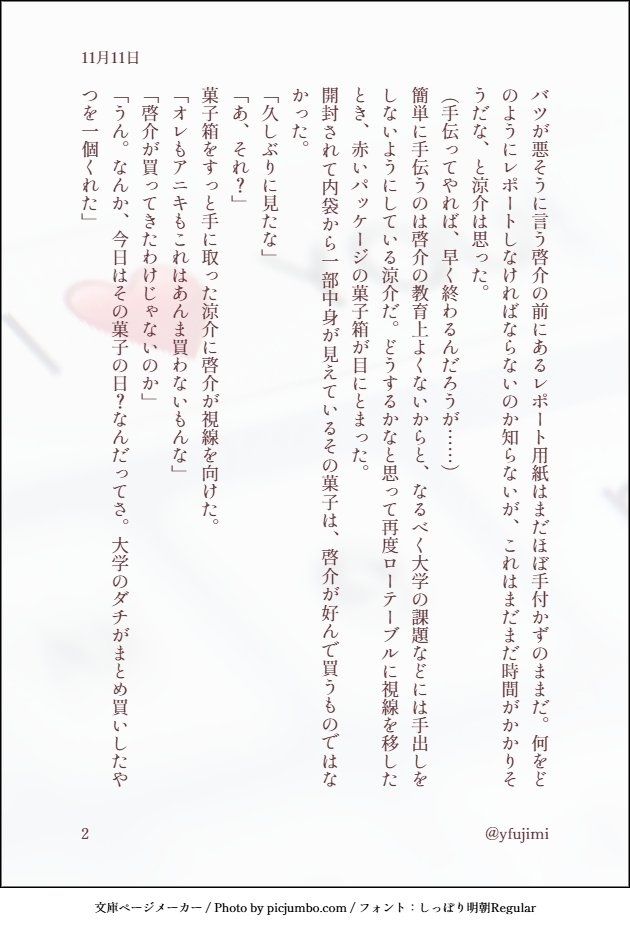 11月11日
バツが悪そうに言う啓介の前にあるレポート用紙はまだほぼ手付かずのままだ。何をど
のようにレポートしなければならないのか知らないが、これはまだまだ時間がかかりそ
うだな、と涼介は思った。
(手伝ってやれば、早く終わるんだろうが……)
簡単に手伝うのは啓介の教育上よくないからと、なるべく大学の課題などには手出しを
しないようにしている涼介だ。どうするかなと思って再度ローテーブルに視線を移した
とき、赤いパッケージの菓子箱が目にとまった。
開封されて内袋から一部中身が見えているその菓子は、啓介が好んで買うものではな
かった。
「久しぶりに見たな」
「あ、それ?」
菓子箱をすっと手に取った涼介に啓介が視線を向けた。
「オレもアニキもこれはあんま買わないもんな」
「啓介が買ってきたわけじゃないのか」
「うん。なんか、今日はその菓子の日?なんだってさ。大学のダチがまとめ買いしたや
つを一個くれた」
2
@yfujimi
文庫ページメーカー / Photo by picjumbo.com / フォント：しっぽり明朝Regular